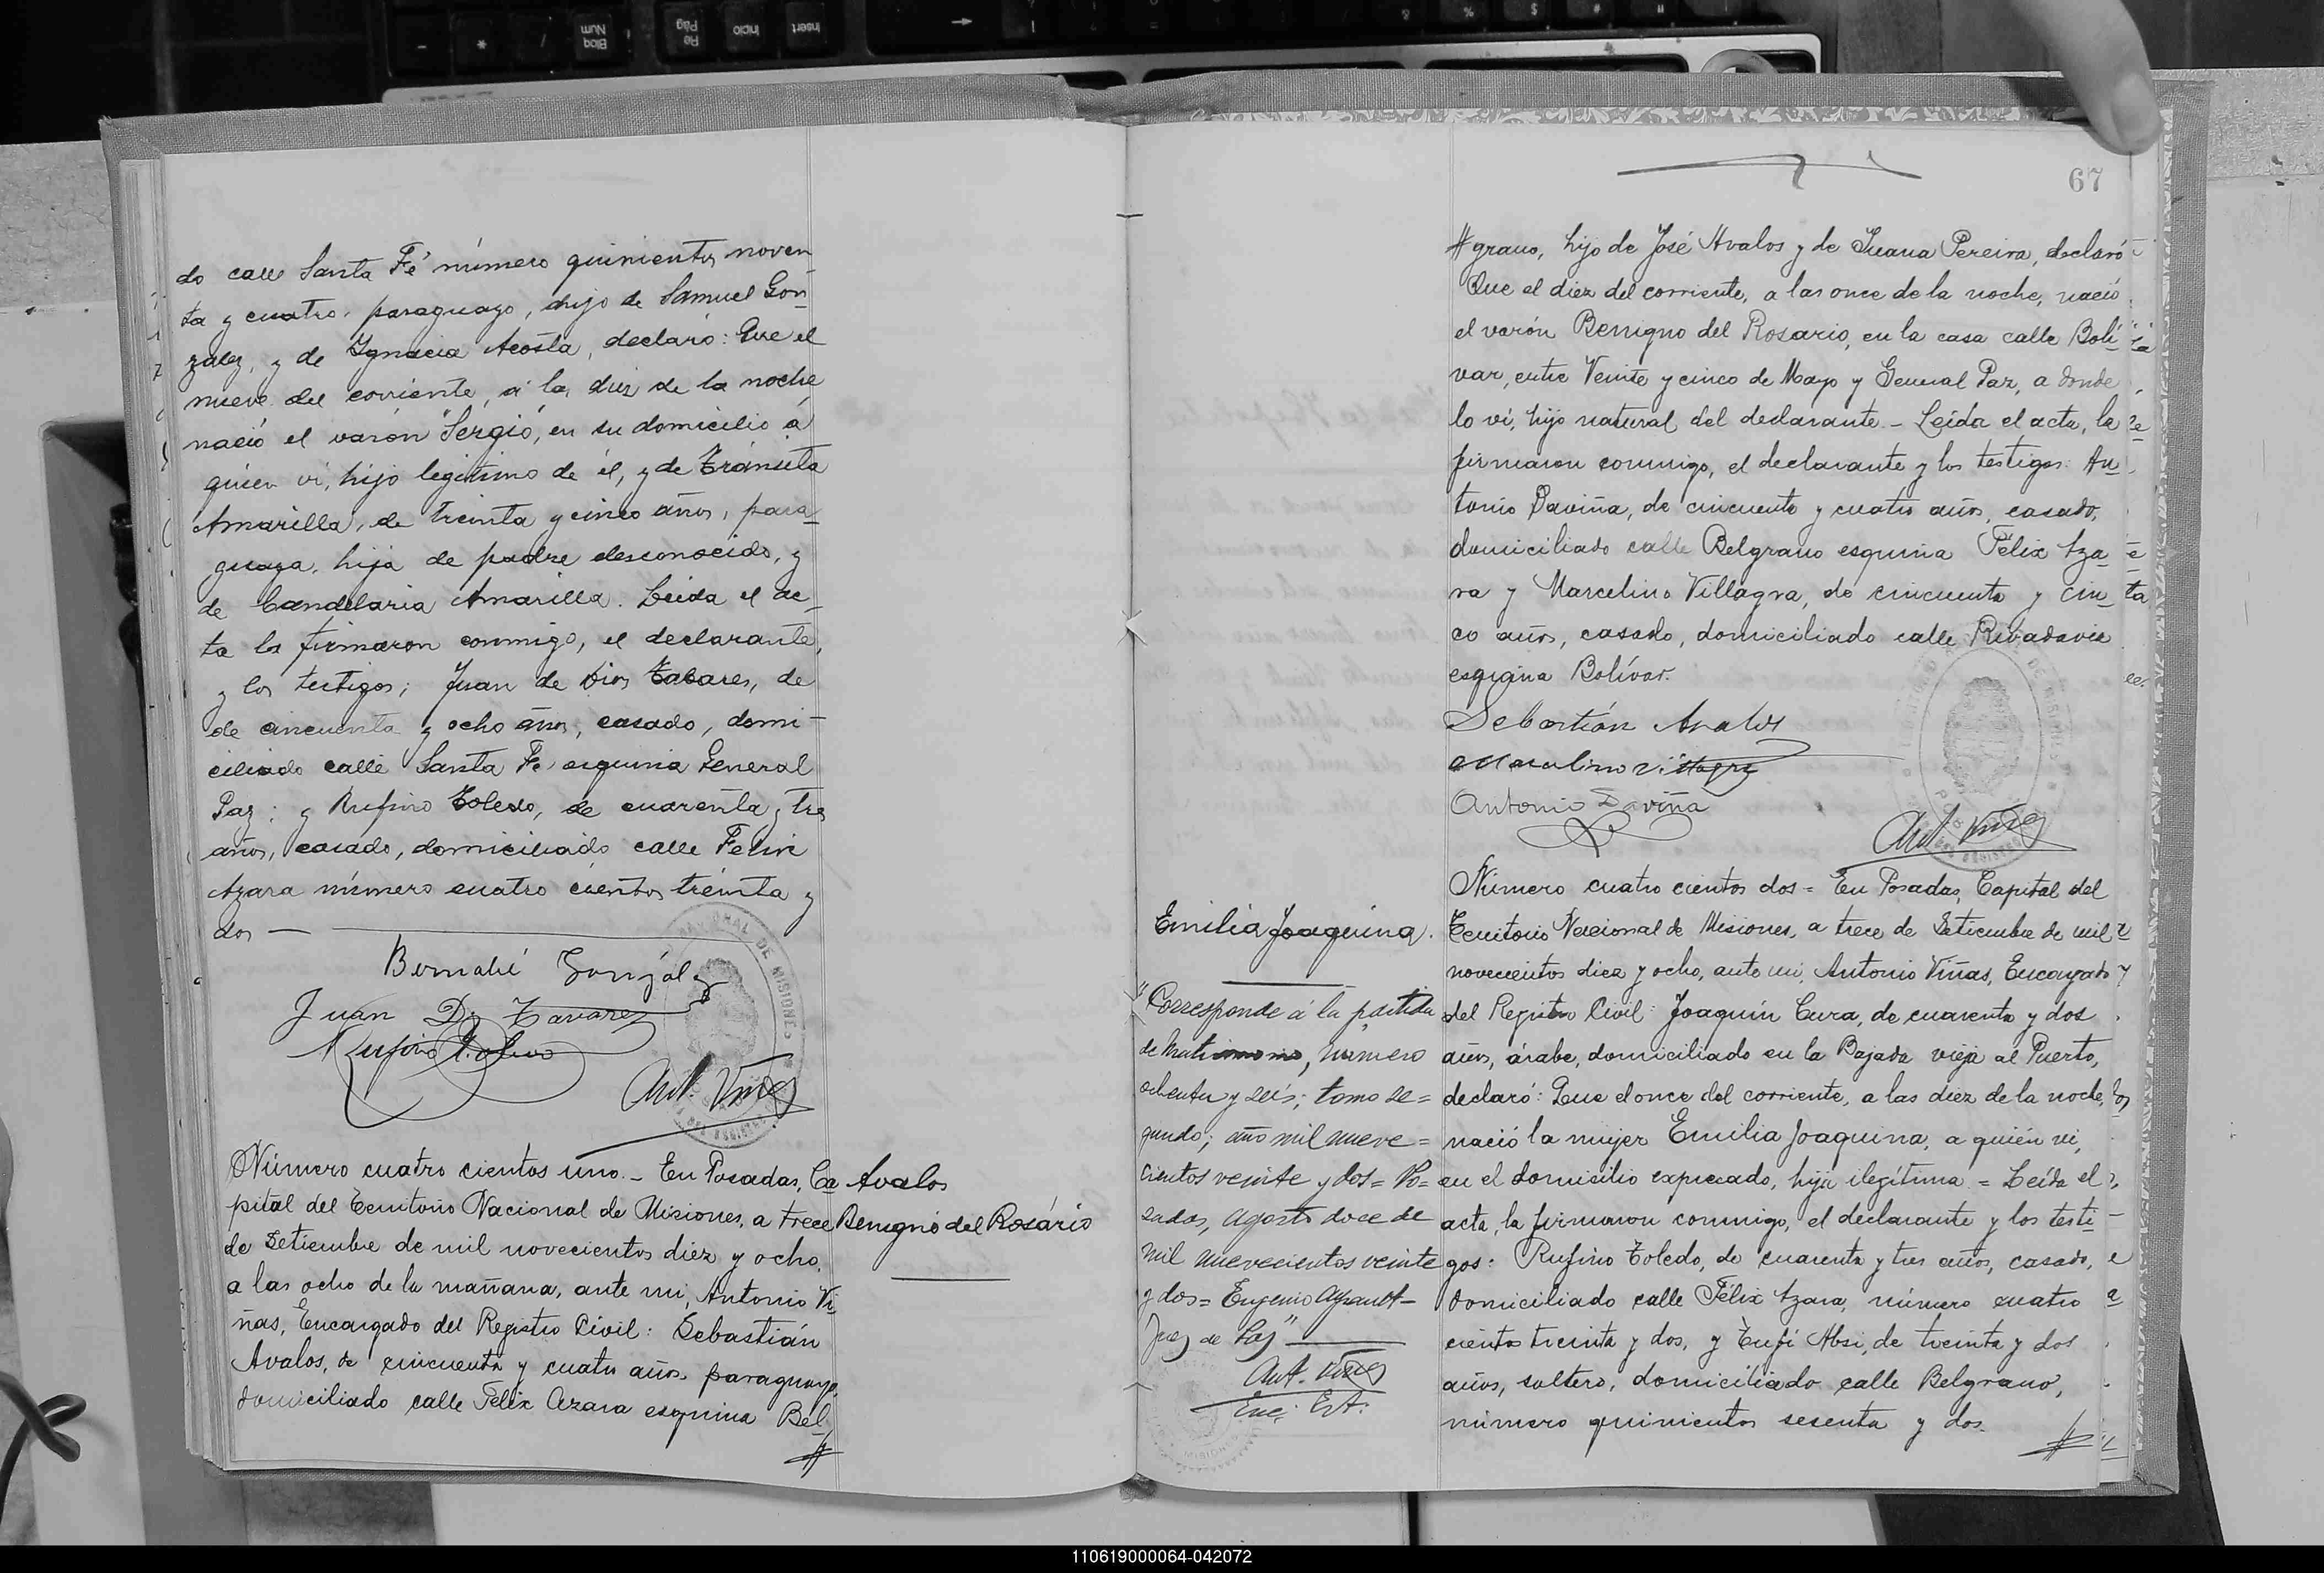 do calle Santa Fé número quinientos noven
ta y cuatro, paraguayo, hijo de Samuel Gon
zalez, y de Ygnacia Acosta, declaró: Que el
nueve del corriente, a las diez de la noche,
nació el varón "Sergio", en su domicilio á
quien vi, hijo legitimo de él, y de Tránsita
Amarilla, de treinta y cinco años, para-
guaya, hija de padre desconocido, y
de Candelaria Amarilla. Leida el ac-
ta la firmaron conmigo, el declarante,
y los testigos; Juan de Dios Tabares, de
de cincuenta y ocho años, casado, domi-
ciliado calle Santa Fé esquina General
Paz; y Rufino Toledo, de cuarenta y tres
años, casado, domiciliado calle Felix
Azara número cuatro cientos treinta y
dos —
Bernabé González
Juan D. Tavarez
Rufino Toledo
Ant. Viñas
Número cuatro cientos uno.- En Posadas, Ca
pital del Territorio Nacional de Misiones, a trece
de Setiembre de mil novecientos diez y ocho,
a las ocho de la mañana, ante mi, Antonio Vi-
ñas, Encargado del Registro Civil: Sebastián
Avalos, de cincuenta y cuatro años, paraguayo,
domiciliado calle Félix Azara esquina Bel-
#
Avalos
Benigno del Rosário
67
# grano, hijo de José Avalos y de Juana Pereira, declaró
Que el diez del corriente, a las once de la noche, nació
el varón Benigno del Rosario, en la casa calle Bolí-
var, entre Veinte y cinco de Mayo y General Paz, a donde
lo ví, hijo natural del declarante.- Leída el acta, la
firmaron conmigo, el declarante y los testigos: An-
tonio Daviña, de cincuenta y cuatro años, casado,
domiciliado calle Belgrano esquina Félix Aza-
ra y Marcelino Villagra, de cincuenta y cin-
co años, casado, domiciliado calle Rivadavia
esquina Bolívar.
Sebastián Avalos
Marcelino Villagra
Antonio Daviña
Ant. Viñas
Emilia Joaquina.
"Corresponde á la partida
de matrimonio, número
ochenta y seis; tomo se=
gundo; año mil nueve=
cientos veinte y dos= Po=
sadas, Agosto doce de
mil nuevecientos veinte
y dos= Eugenio
Juez de Paz"
Ant. Viñas
Enc.
Número cuatro cientos dos = En Posadas, Capital del
Territorio Nacional de Misiones, a trece de Setiembre de mil
novecientos diez y ocho, ante mi, Antonio Viñas, Encargado
del Registro Civil: Joaquín Cura, de cuarenta y dos
años, árabe, domiciliado en la Bajada vieja al Puerto,
declaró: Que el once del corriente, a las diez de la noche,
nació la mujer Emilia Joaquina, a quién vi,
en el domicilio expresado, hija ilegítima = Leída el
acta, la firmaron conmigo, el declarante y los testi-
gos: Rufino Toledo, de cuarenta y tres años, casado,
domiciliado calle Félix Azara, número cuatro
cientos treinta y dos, y Tufi Absi, de treinta y dos
años, soltero, domiciliado calle Belgrano,
número quinientos sesenta y dos.
#
110619000064-042072